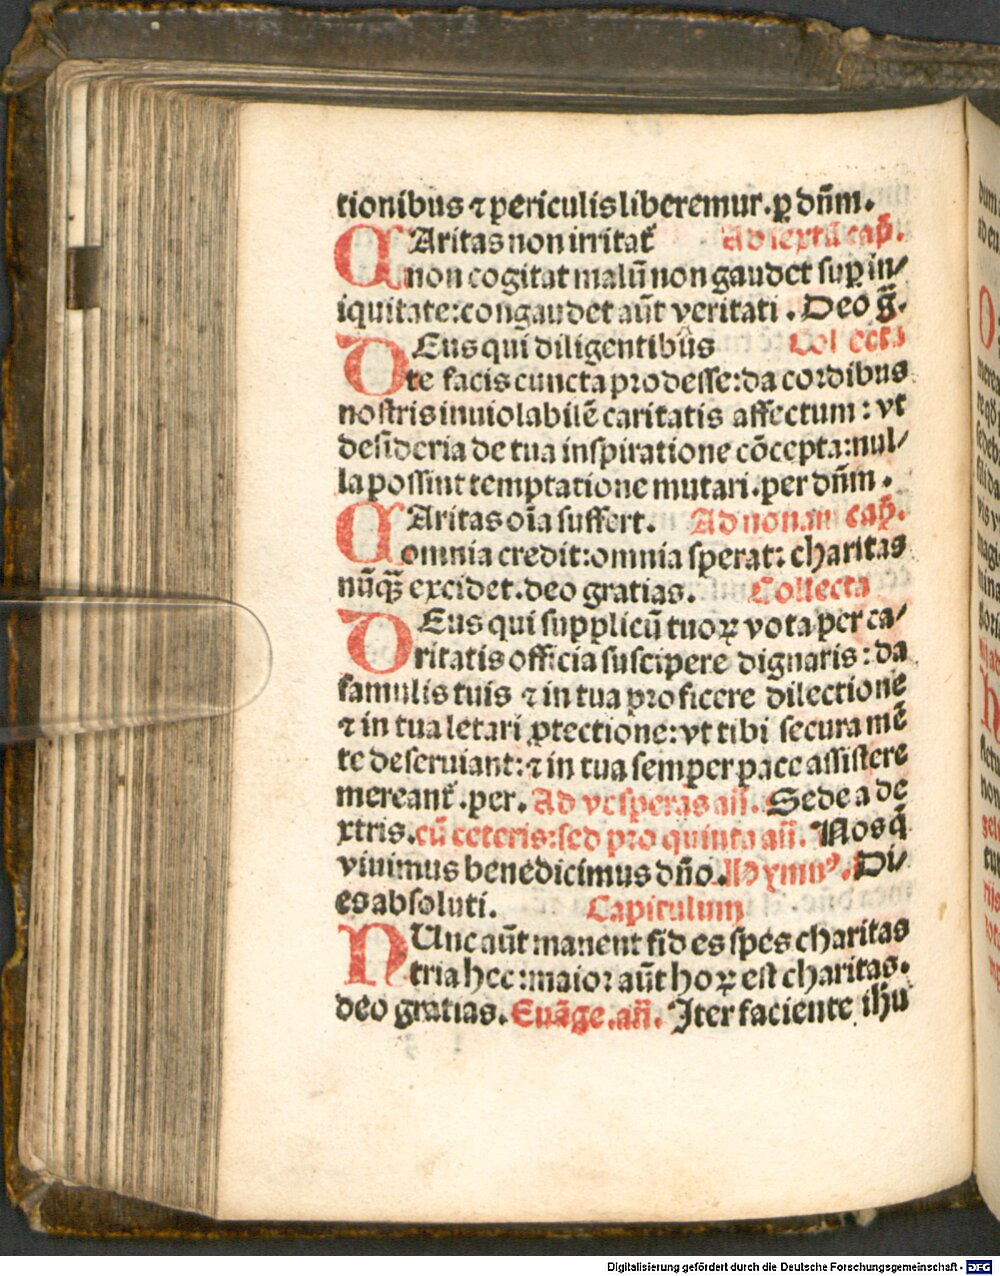 tionibus ⁊ periculis liberemur. ꝑ dn̄m.
CAritas non irritat᷑ Ad sextā cap̄.
non cogitat malū non gaudet suꝑ in/
iquitate: congaudet aūt veritati. Deo g̃.
DEus qui diligentibus Collecta
te facis cuncta prodesse: da cordibus
nostris inuiolabilē caritatis affectum: vt
desideria de tua inspiratione cōcepta: nul/
la possint temptatione mutari. per dn̄m.
CAritas oīa suffert. Ad nonam cap̄.
omnia credit: omnia sperat: charitas
nūqꝫ excidet. deo gratias. Collecta
DEus qui supplicū tuoꝝ vota per ca/
ritatis officia suscipere dignaris: da
famulis tuis ⁊ in tua proficere dilectione
⁊ in tua letari ꝓtectione: vt tibi secura mē
te deseruiant: ⁊ in tua semper pace assistere
mereant᷑. per. Ad vesperas an̄. Sede a de
xtris. cū ceteris: sed pro quinta an̄. Nos q̄
viuimus benedicimus dn̄o. Hymnꝰ. Di/
es absoluti. Capitulum
NUnc aūt manent fides spes charitas
tria hec: maior aūt hoꝝ est charitas.
deo gratias. Euāge. an̄. Iter faciente ihu
Digitalisierung gefördert durch die Deutsche Forschungsgemeinschaft - DFG